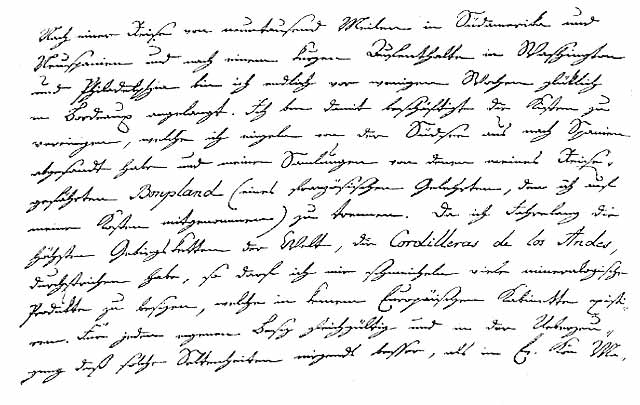 Nach einer Reise von neuntausend Meilen in Südamerika und
Neuspanien und nach einem kurzen Aufenthalte in Washington
und Philadelphia bin ich endlich vor wenigen Wochen glüklich
in Bordeaux angelangt. Ich bin damit beschäftigt die Kisten zu
vereinigen, welche ich einzeln von der Südsee aus nach Spanien
abgesandt habe und meine Samlungen von denen meines Reise-
gefährten Bonpland (eines französischen Gelehrten, den ich auf
meine Kosten mitgenommen) zu trennen. Da ich Jahrelang die
höchsten Gebirgsketten der Welt, die Cordilleras de los Andes,
durchstrichen habe, so darf ich mir schmeicheln viele mineralogische
Produkte zu besizen, welche in keinem Europäischen Kabinette existi-
ren. Für jeden eigenen Besiz gleichgültig und in der Ueberzeu-
gung daß solche Seltenheiten nirgends besser, als in Ew. Kön. Ma.